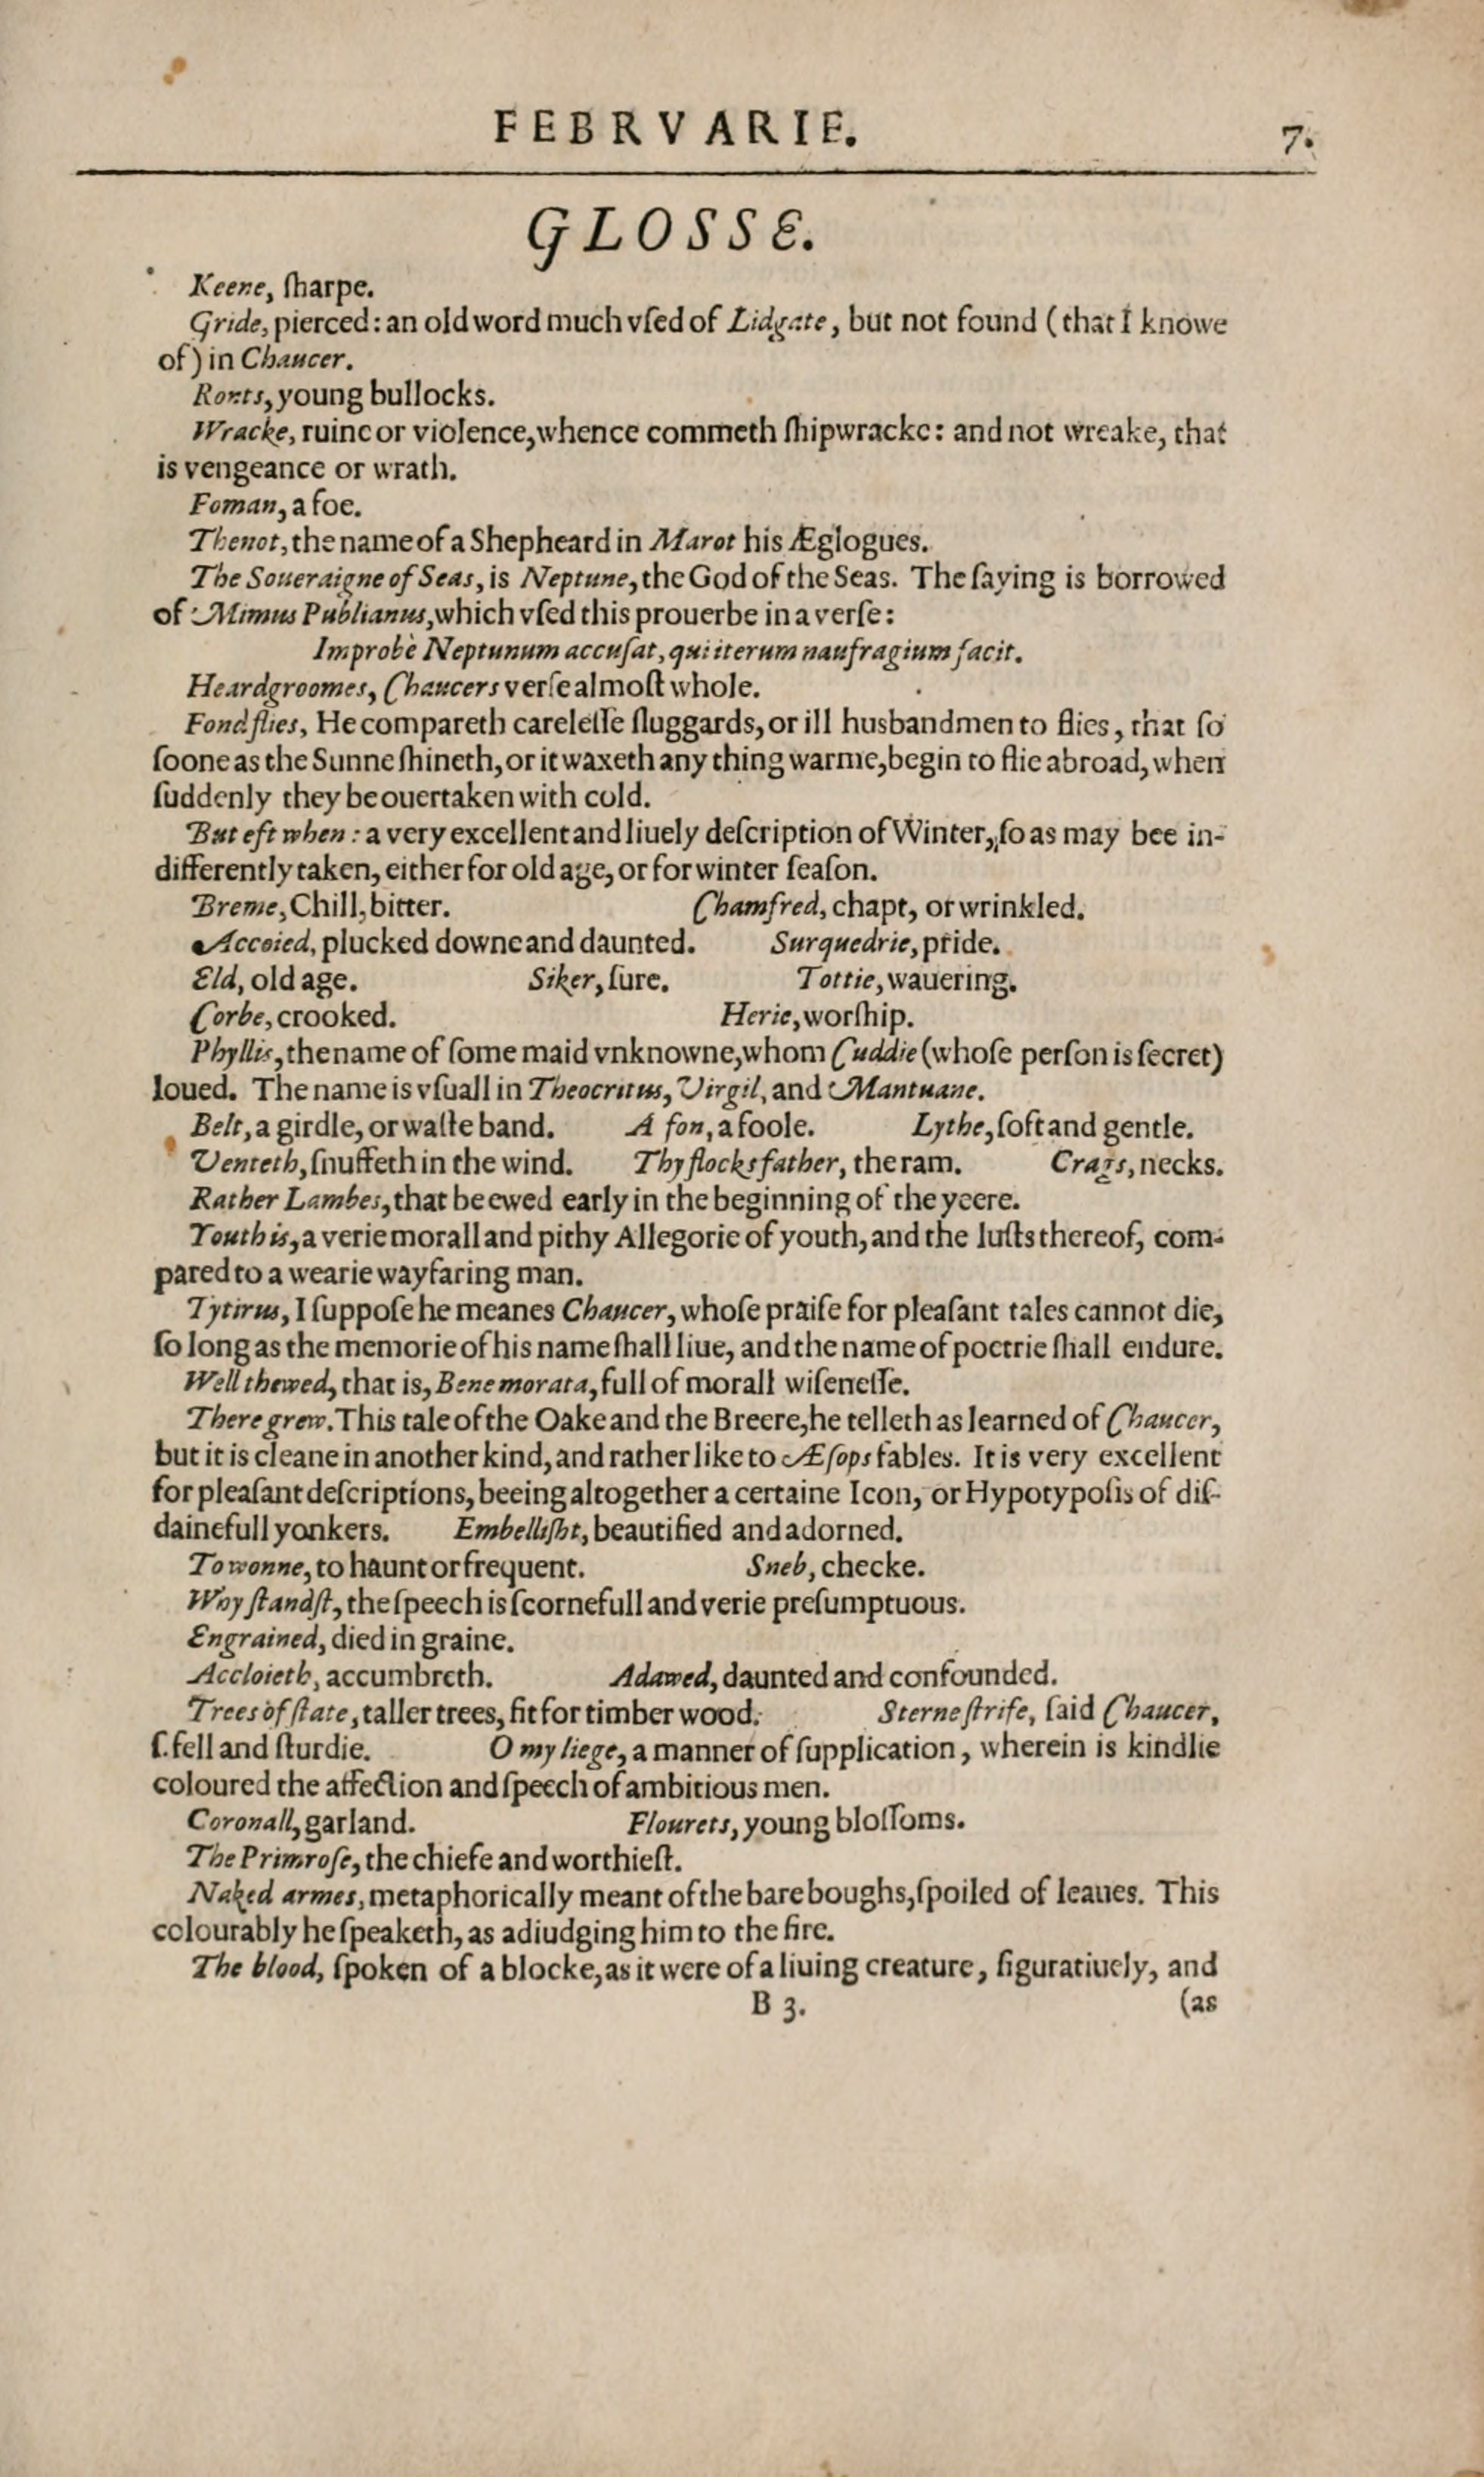 FEBRVARIE. 7.
GLOSSE.
Keene, ſharpe.
Gride, pierced: an old word much vſed of Lidgate, but not found (that I knowe
of) in Chaucer.
Ronts, young bullocks.
Wracke, ruine or violence, whence commeth ſhipwracke: and not wreake, that
is vengeance or wrath.
Foman, a foe.
Thenot, the name of a Shepheard in Marot his Æglogues.
The Soueraigne of Seas, is Neptune, the God of the Seas. The ſaying is borrowed
of Mimus Publianus, which vſed this prouerbe in a verſe:
Improbè Neptunum accuſat, qui iterum naufragium facit.
Heardgroomes, Chaucers verſe almoſt whole.
Fond flies, He compareth careleſſe ſluggards, or ill husbandmen to flies, that ſo
ſoone as the Sunne ſhineth, or it waxeth any thing warme, begin to flie abroad, when
ſuddenly they be ouertaken with cold.
But eft when: a very excellent and liuely deſcription of Winter, ſo as may bee in-
differently taken, either for old age, or for winter ſeaſon.
Breme, Chill, bitter. Chamfred, chapt, or wrinkled.
Accoied, plucked downe and daunted. Surquedrie, pride.
Eld, old age. Siker, ſure. Tottie, wauering.
Corbe, crooked. Herie, worſhip.
Phyllis, the name of ſome maid vnknowne, whom Cuddie (whoſe perſon is ſecret)
loued. The name is vſuall in Theocritus, Virgil, and Mantuane.
Belt, a girdle, or waſte band. A fon, a foole. Lythe, ſoft and gentle.
Venteth, ſnuffeth in the wind. Thy flocks father, the ram. Crags, necks.
Rather Lambes, that be ewed early in the beginning of the yeere.
Youth is, a verie morall and pithy Allegorie of youth, and the luſts thereof, com-
pared to a wearie wayfaring man.
Tytirus, I ſuppoſe he meanes Chaucer, whoſe praiſe for pleaſant tales cannot die,
ſo long as the memorie of his name ſhall liue, and the name of poetrie ſhall endure.
Well thewed, that is, Bene morata, full of morall wiſeneſſe.
There grew. This tale of the Oake and the Breere, he telleth as learned of Chaucer,
but it is cleane in another kind, and rather like to Æſops fables. It is very excellent
for pleaſant deſcriptions, beeing altogether a certaine Icon, or Hypotypoſis of diſ-
dainefull yonkers. Embelliſht, beautified and adorned.
To wonne, to haunt or frequent. Sneb, checke.
Why ſtandſt, the ſpeech is ſcornefull and verie preſumptuous.
Engrained, died in graine.
Accloieth, accumbreth. Adawed, daunted and confounded.
Trees of ſtate, taller trees, fit for timber wood. Sterne ſtrife, ſaid Chaucer,
ſ. fell and ſturdie. O my liege, a manner of ſupplication, wherein is kindlie
coloured the affection and ſpeech of ambitious men.
Coronall, garland. Flourets, young bloſſoms.
The Primroſe, the chiefe and worthieſt.
Naked armes, metaphorically meant of the bare boughs, ſpoiled of leaues. This
colourably he ſpeaketh, as adiudging him to the fire.
The blood, ſpoken of a blocke, as it were of a liuing creature, figuratiuely, and
B 3. (as